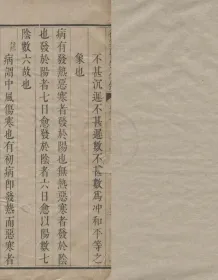 不甚沉遲不甚遲數不甚數爲冲和不等之
象也
病有發熱惡寒者發於陽也無熱惡寒者發於陰
也發於陽者七日愈發於陰者六日愈以陽數七
陰數六故也
病謂中風傷寒也有初病卽發熱而惡寒者